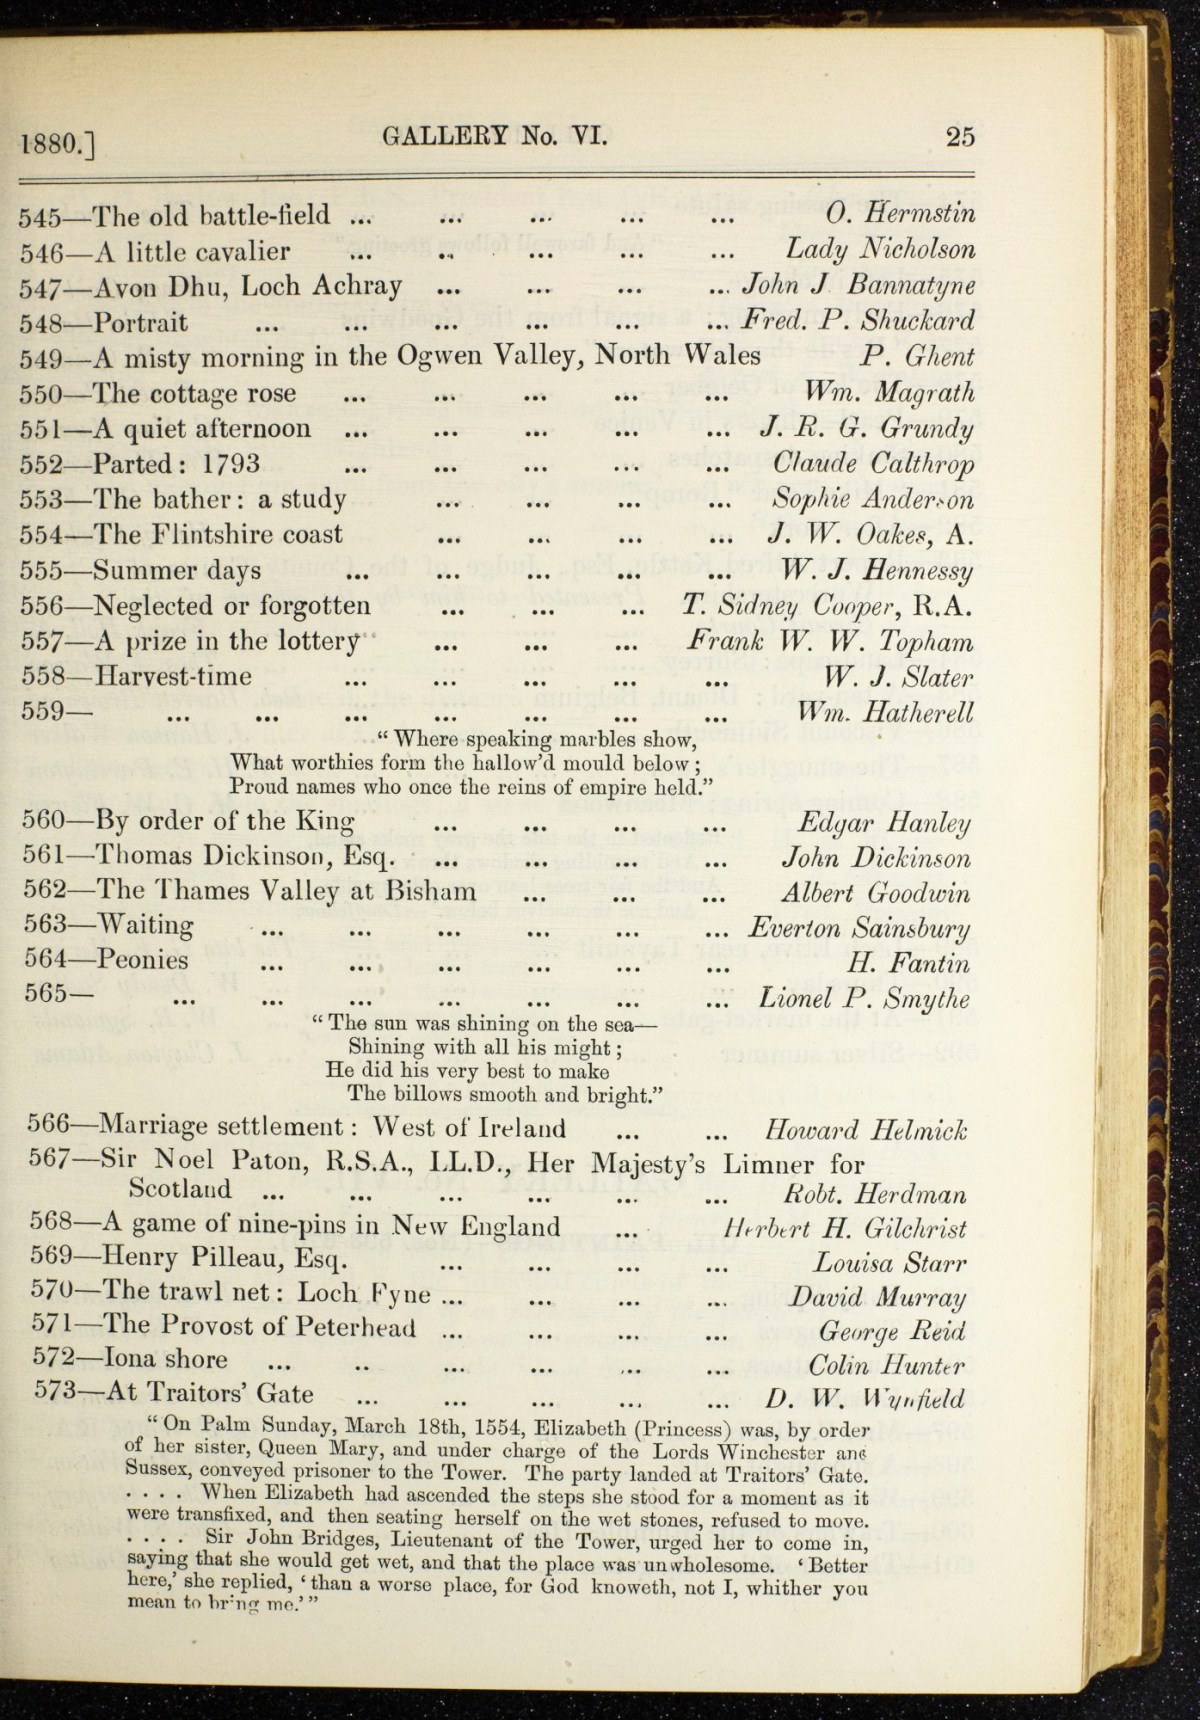 1880.] GALLERY No. VI. 25
545—The old battle-field ... ... ... ... ... O. Hermstin
546—A little cavalier ... .. ... ... ... Lady Nicholson
547—Avon Dhu, Loch Achray ... ... ... ... John J Bannatyne
548—Portrait ... ... ... ... ... ... Fred. P. Shuckard
549—A misty morning in the Ogwen Valley, North Wales P. Ghent
550—The cottage rose ... ... ... ... ... Wm. Magrath
551—A quiet afternoon ... ... ... ... ... J. R. G. Grundy
552—Parted: 1793 ... ... ... ... ... Claude Calthrop
553—The bather: a study ... ... ... ... Sophie Anderson
554—The Flintshire coast ... ... ... ... J. W. Oakes, A.
555—Summer days ... ... ... ... ... W. J. Hennessy
556—Neglected or forgotten ... ... ... T. Sidney Cooper, R.A.
557—A prize in the lottery ... ... ... Frank W. W. Topham
558—Harvest-time ... ... ... ... ... W. J. Slater
559— ... ... ... ... ... ... ... Wm. Hatherell
"Where speaking marbles show,
What worthies form the hallow'd mould below;
Proud names who once the reins of empire held."
560—By order of the King ... ... ... ... Edgar Hanley
561—Thomas Dickinson, Esq. ... ... ... ... John Dickinson
562—The Thames Valley at Bisham ... ... ... Albert Goodwin
563—Waiting ... ... ... ... ... ... Everton Sainsbury
564—Peonies ... ... ... ... ... ... H. Fantin
565— ... ... ... ... ... ... ... Lionel P. Smythe
"The sun was shining on the sea—
Shining with all his might;
He did his very best to make
The billows smooth and bright."
566—Marriage settlement: West of Ireland ... ... Howard Helmick
567—Sir Noel Paton, R.S.A., LL.D., Her Majesty's Limner for
Scotland ... ... ... ... ... ... Robt. Herdman
568—A game of nine-pins in New England ... Herbert H. Gilchrist
569—Henry Pilleau, Esq. ... ... ... ... Louisa Starr
570—The trawl net: Loch Fyne ... ... ... ... David Murray
571—The Provost of Peterhead ... ... ... ... George Reid
572—Iona shore ... .. ... ... ... ... Colin Hunter
573—At Traitors' Gate ... ... ... ... ... D. W. Wynfield
"On Palm Sunday, March 18th, 1554, Elizabeth (Princess) was, by order
of her sister, Queen Mary, and under charge of the Lords Winchester and
Sussex, conveyed prisoner to the Tower. The party landed at Traitors' Gate.
. . . . When Elizabeth had ascended the steps she stood for a moment as it
were transfixed, and then seating herself on the wet stones, refused to move.
. . . . Sir John Bridges, Lieutenant of the Tower, urged her to come in,
saying that she would get wet, and that the place was unwholesome. 'Better
here,' she replied, 'than a worse place, for God knoweth, not I, whither you
mean to bring me.'"